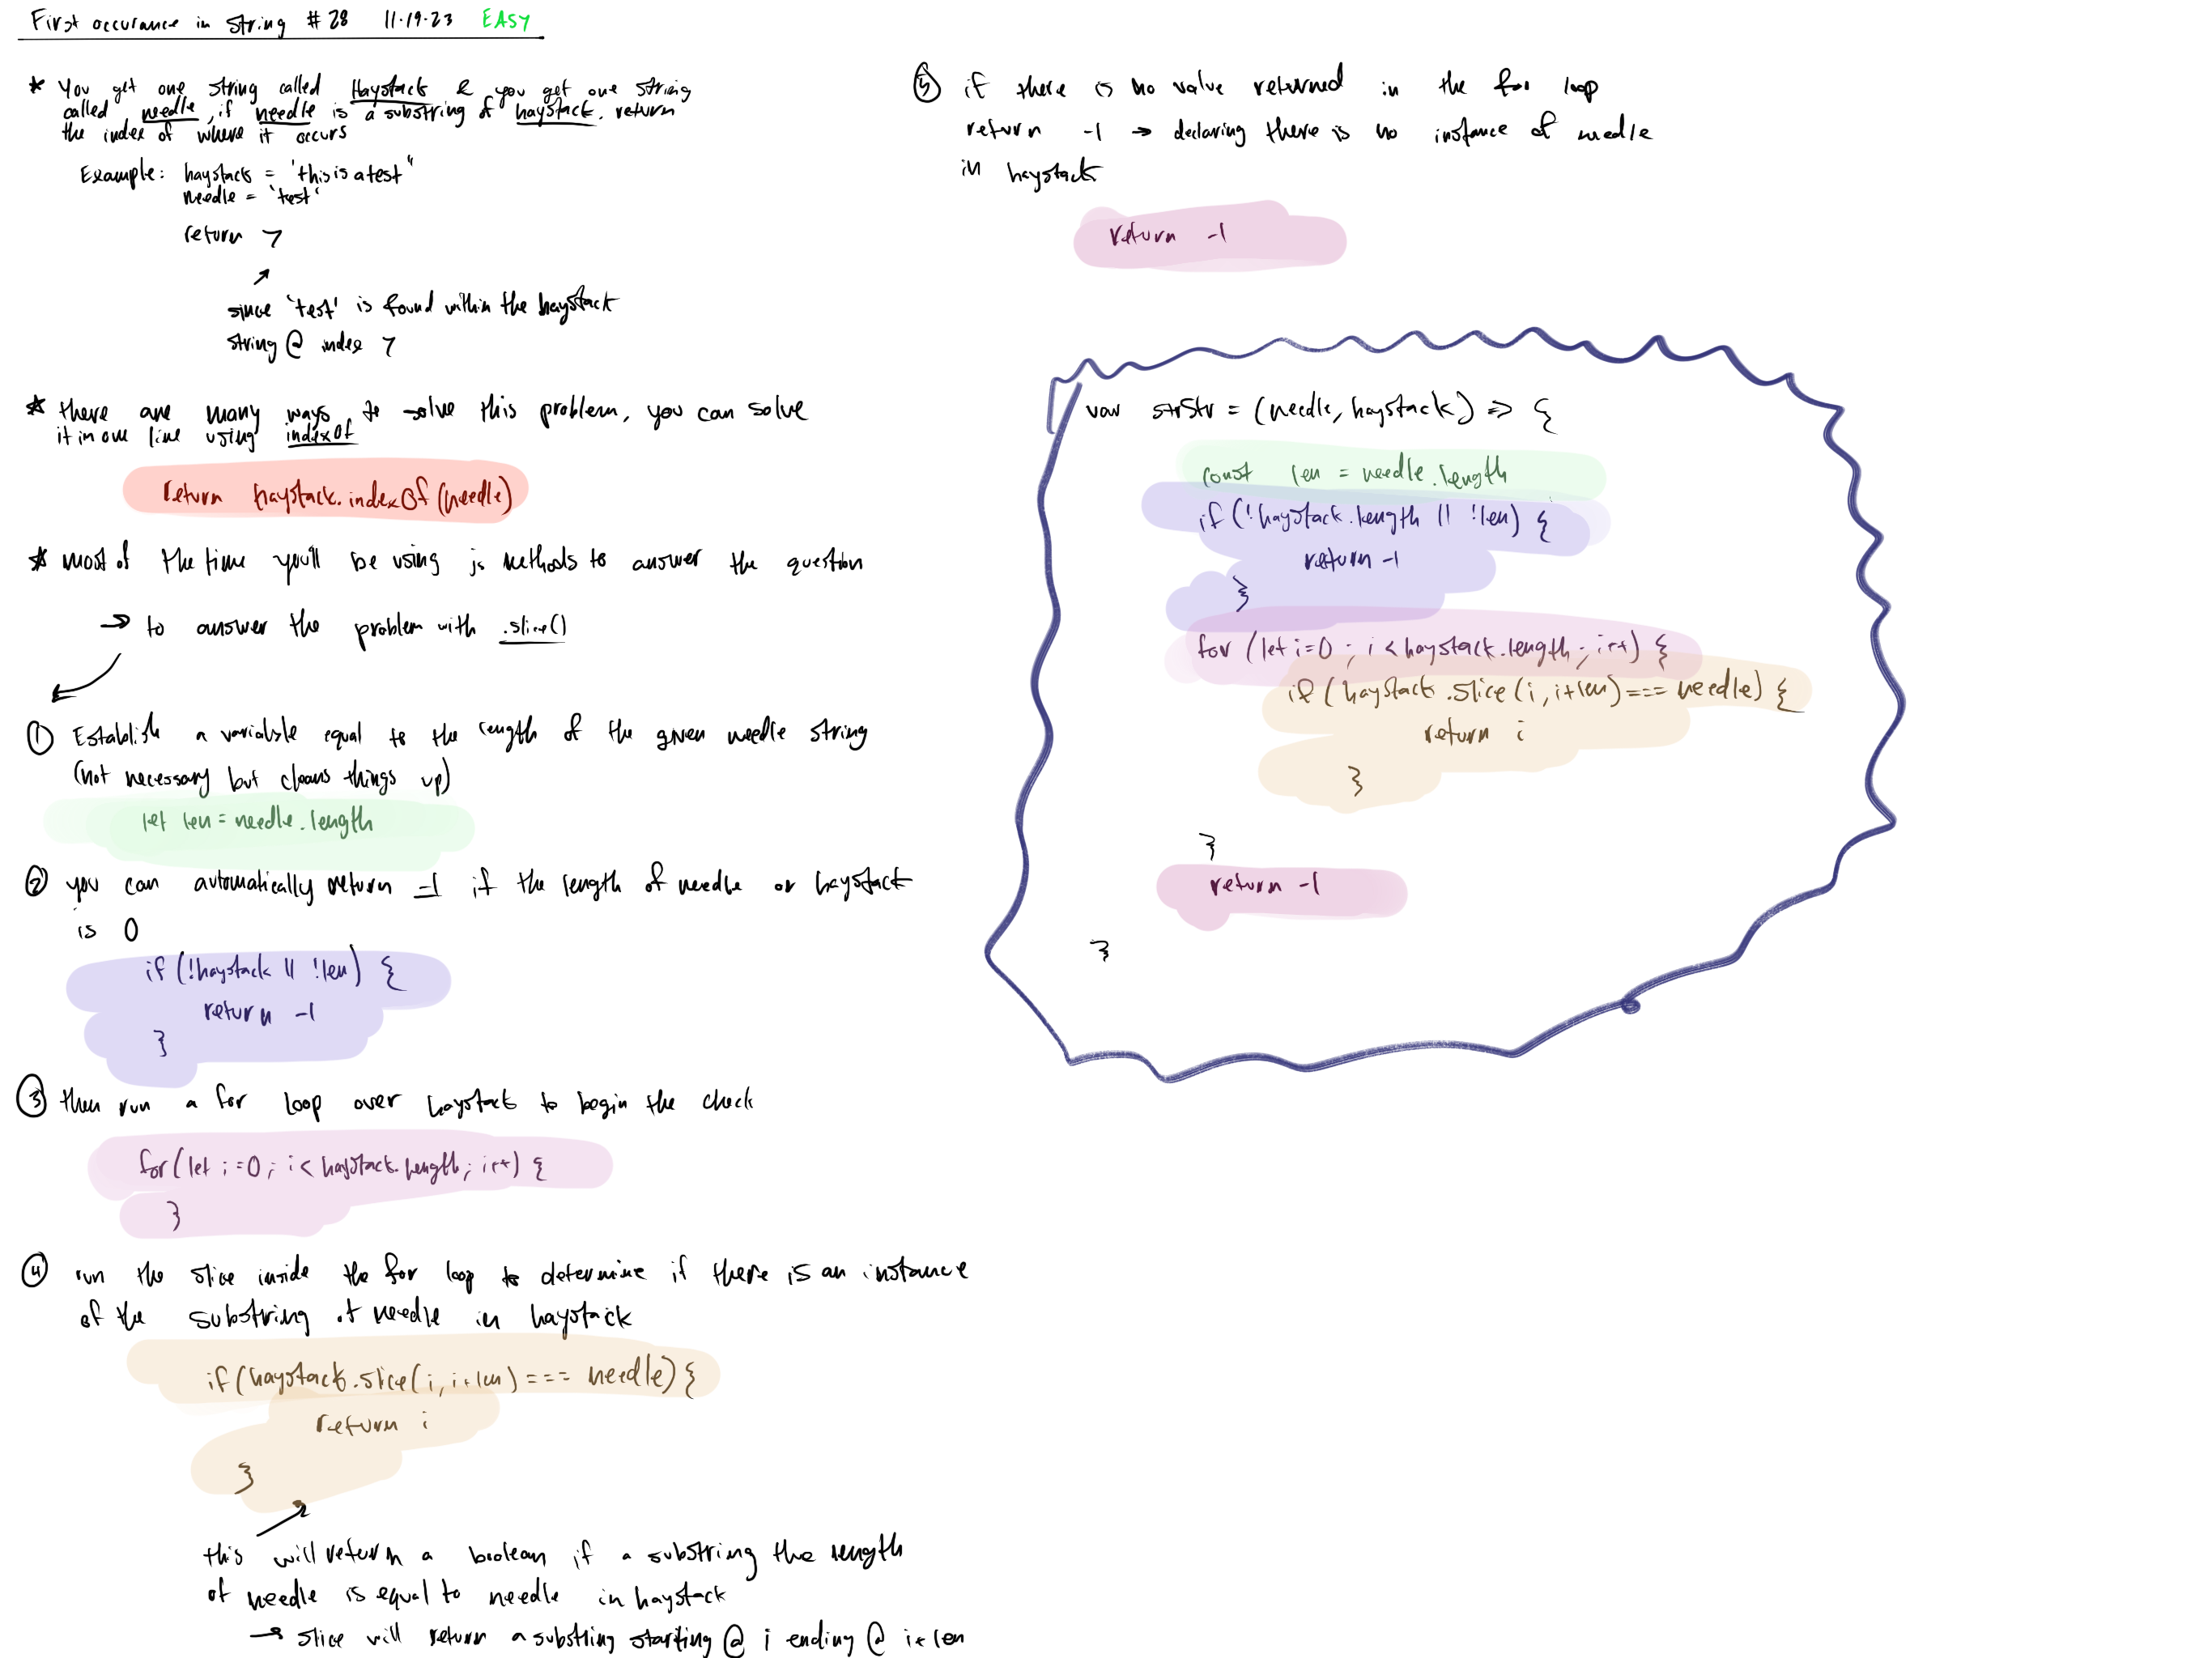 First occurance in string #28 11.19.23 EASY
* You get one string called Haystack & you get one string
called needle, if needle is a substring of haystack. return
the index of where it occurs
Example: haystack = 'this is a test"
needle = 'test'
return 7
since 'test' is found within the haystack
string @ index 7
* there are many ways to solve this problem, you can solve
it in one line using indexOf
return haystack.indexOf(needle)
* most of the time you'll be using js methods to answer the question
→ to answer the problem with .slice()
① Establish a variable equal to the length of the given needle string
(not necessary but cleans things up)
let len = needle.length
② you can automatically return -1 if the length of needle or haystack
is 0
if (!haystack || !len) {
return -1
}
③ then run a for loop over haystack to begin the check
for (let i=0; i < haystack.length; i++) {
}
④ run the slice inside the for loop to determine if there is an instance
of the substring of needle in haystack
if (haystack.slice(i, i+len) === needle) {
return i
}
this will return a boolean if a substring the length
of needle is equal to needle in haystack
→ slice will return a substring starting @ i ending @ i+len
⑤ if there is no value returned in the for loop
return -1 → declaring there is no instance of needle
in haystack
return -1
var strStr = (needle, haystack) => {
const len = needle.length
if (!haystack.length || !len) {
return -1
}
for (let i=0; i < haystack.length; i++) {
if (haystack.slice(i, i+len) === needle) {
return i
}
}
return -1
}